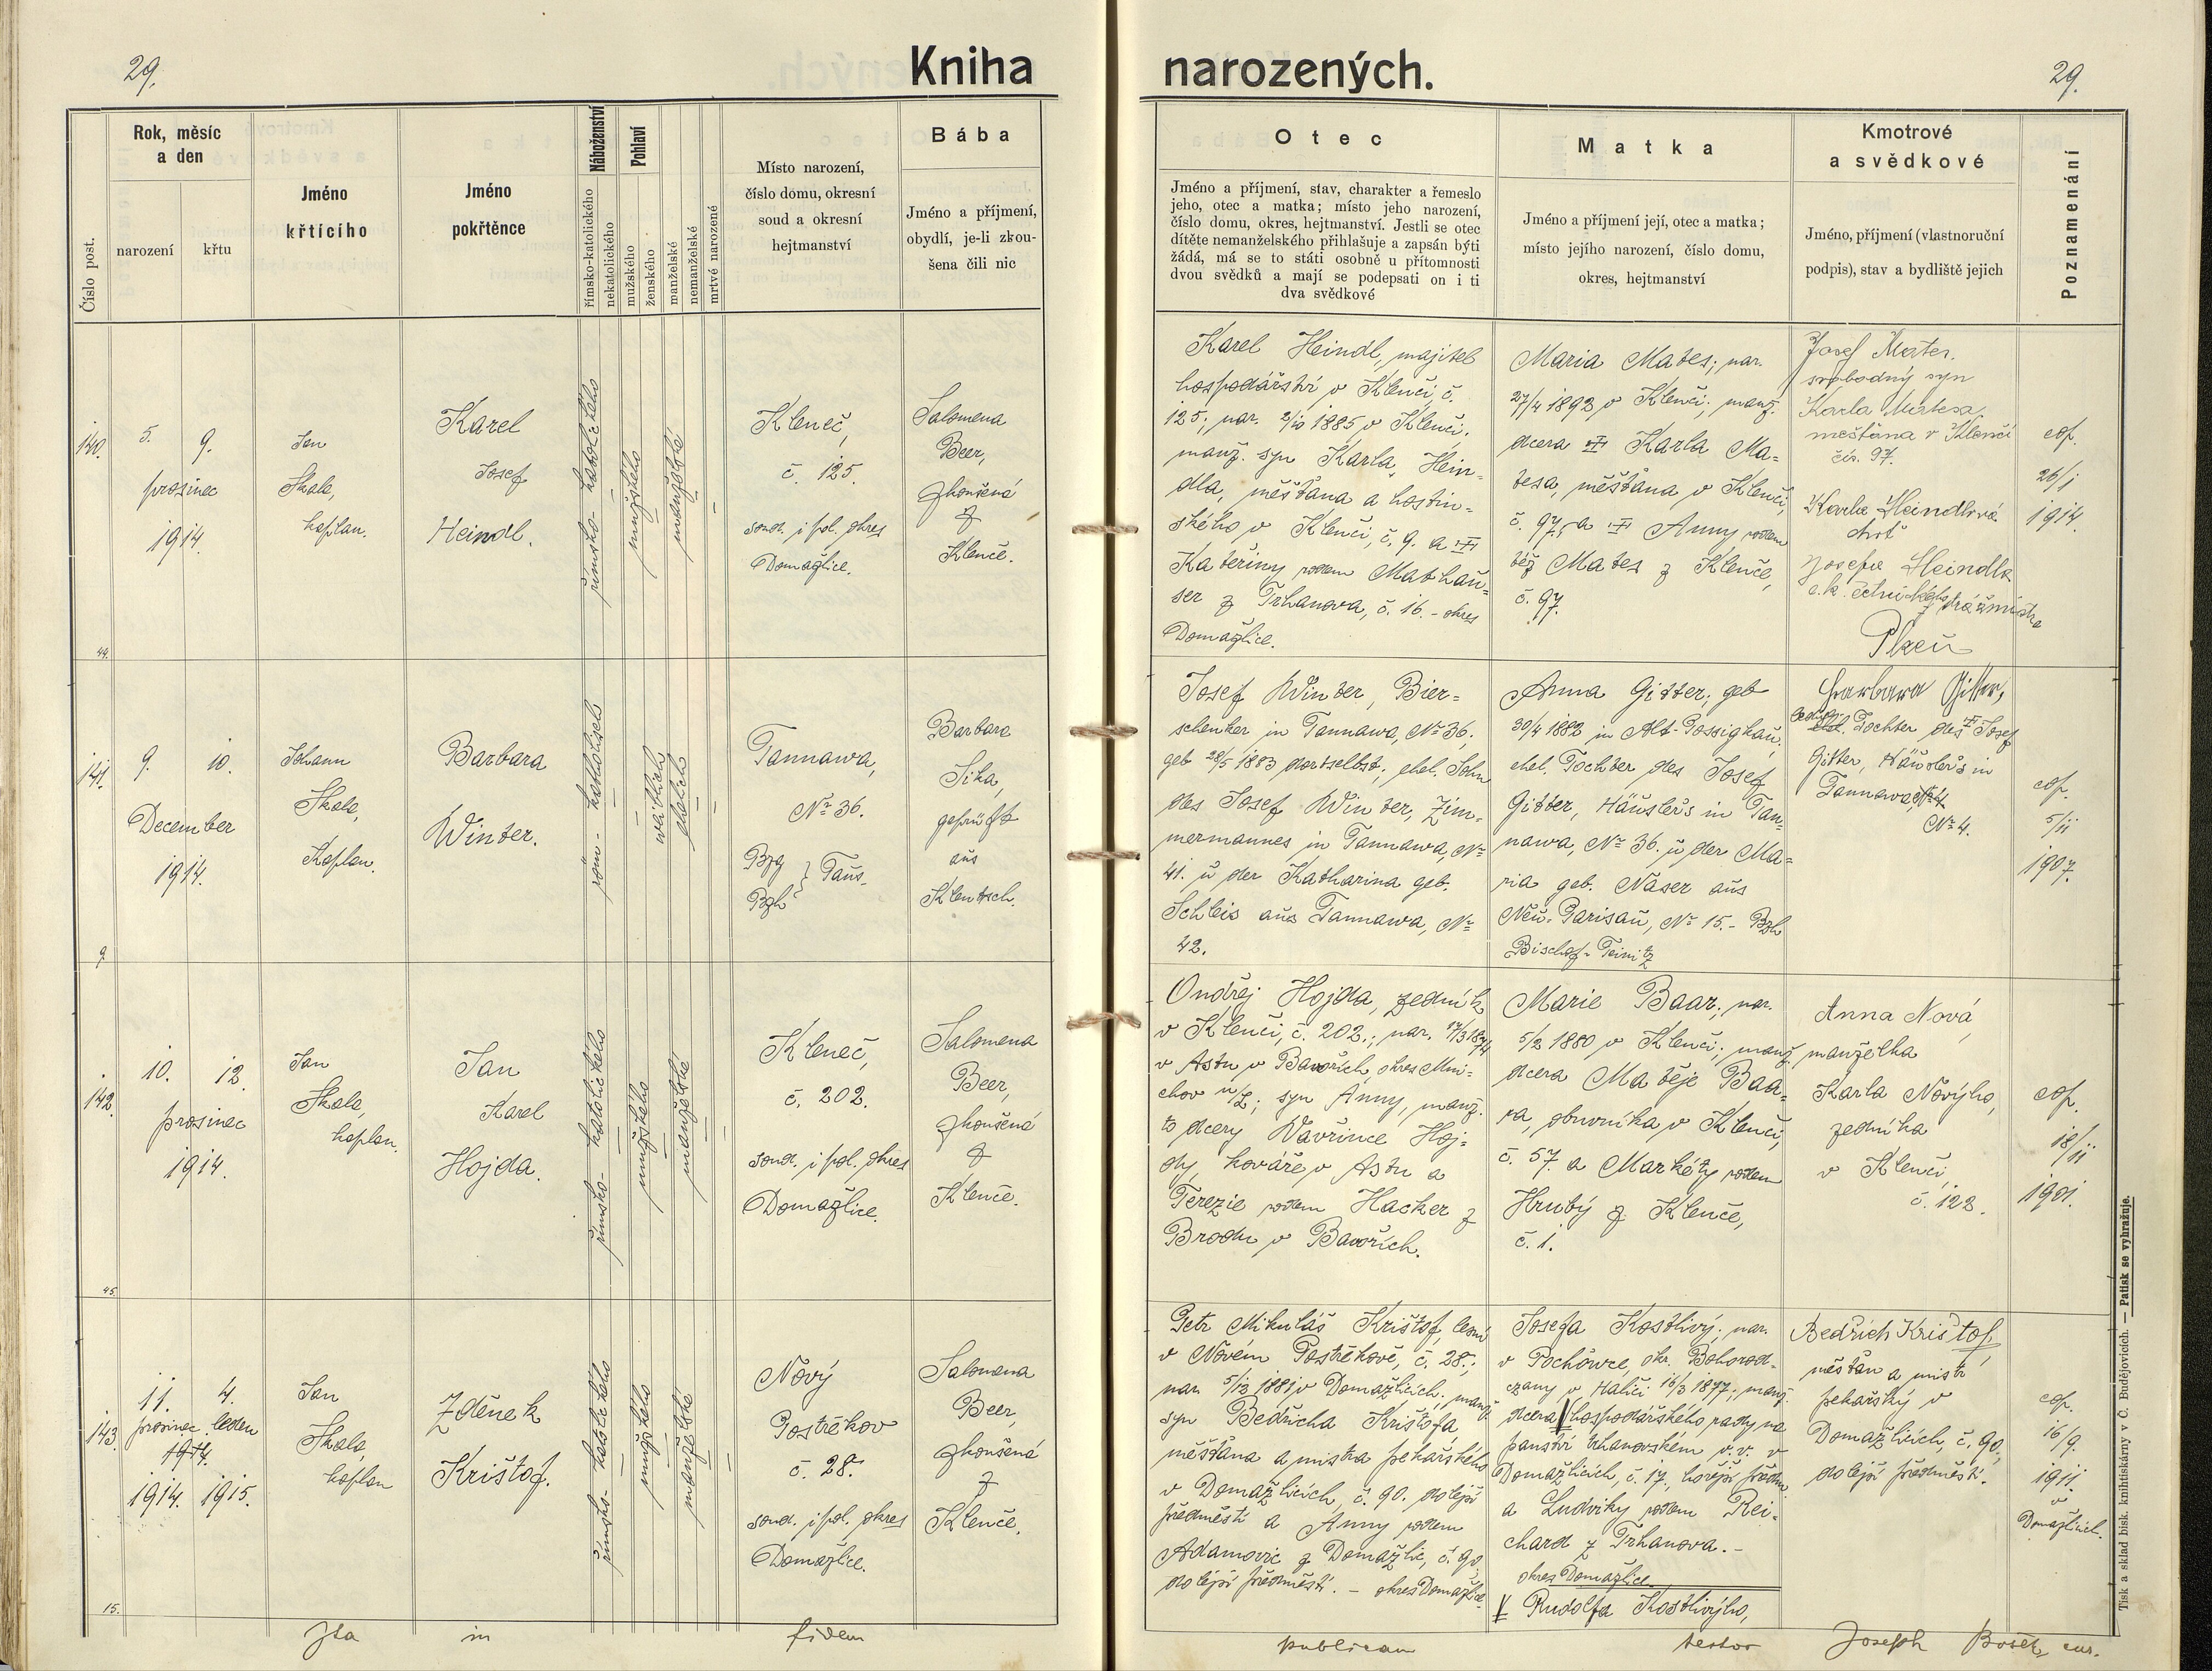 29.
Kniha narozených.
29.
Číslo post.
Rok, měsíc
a den
narození
křtu
Jméno
křtícího
Jméno
pokřtěnce
Náboženství
římsko-katolického
nekatolického
Pohlaví
mužského
ženského
manželské
nemanželské
mrtvé narozené
Místo narození,
číslo domu, okresní
soud a okresní
hejtmanství
Bába
Jméno a příjmení,
obydlí, je-li zkou-
šena čili nic
Otec
Jméno a příjmení, stav, charakter a řemeslo
jeho, otec a matka; místo jeho narození,
číslo domu, okres, hejtmanství. Jestli se otec
dítěte nemanželského přihlašuje a zapsán býti
žádá, má se to státi osobně u přítomnosti
dvou svědků a mají se podepsati on i ti
dva svědkové
Matka
Jméno a příjmení její, otec a matka;
místo jejího narození, číslo domu,
okres, hejtmanství
Kmotrové
a svědkové
Jméno, příjmení (vlastnoruční
podpis), stav a bydliště jejich
Poznamenání
140.
5. 9.
prosinec
1914.
Jan
Skala,
kaplan.
Karel
Josef
Heindl.
římsko-katolického
mužského
manželské
Kleneč,
č. 125.
soud. i pol. okres
Domažlice.
Salomena
Beer,
zkoušená
z
Klenče.
Karel Heindl, majitel
hospodářství v Klenči, č.
125; nar. 2/10 1885 v Klenči,
manž. syn Karla Hein-
dla, měšťana a hostin-
ského v Klenči, č. 9. a
Kateřiny rodem Mathau-
ser z Trhanova, č. 16. - okres
Domažlice.
Maria Mates; nar.
27/4 1892 v Klenči; manž.
dcera Karla Ma-
tesa, měšťana v Klenči,
č. 97, a Anny rodem
též Mates z Klenče,
č. 97.
Josef Mates.
svobodný syn
Karla Matesa,
měšťana v Klenčí
čís. 97.
Karla Heindlová
choť
Josefa Heindla
c.k. četnického strážmistra
Plzeň
cop.
26/1
1914.
44.
141.
9. 10.
December
1914.
Johann
Skala,
Kaplan.
Barbara
Winter.
röm-katholisch
weiblich
ehelich
Tannawa,
No 36.
Bzg
Bzh
} Taus.
Barbara
Sika,
geprüft
aus
Klentsch.
Josef Winter, Bier-
schenker in Tannawa, No 36,
geb 20/5 1883 dortselbst; ehel. Sohn
des Josef Winter, Zim-
mermannes in Tannawa, No
41. u der Katharina geb.
Schleis aus Tannawa, No
42.
Anna Gitter; geb
30/4 1882 in Alt-Possigkau,
ehel. Tochter des Josef
Gitter, Häuslers in Tan-
nawa, No 36. u der Ma-
ria geb. Naser aus
Neu-Parisau, No 15. - Bzh
Bischof-Teinitz
Barbara Gitter,
Tochter des Josef
Gitter, Häuslers in
Tannawa,
No 4.
cop.
5/11
1907.
9.
142.
10. 12.
prosinec
1914.
Jan
Skala,
kaplan.
Jan
Karel
Hojda.
římsko-katolického
mužského
manželské
Kleneč,
č. 202.
soud. i pol. okres
Domažlice.
Salomena
Beer,
zkoušená
z
Klenče.
Ondřej Hojda, zedník
v Klenči, č. 202.; nar. 17/3 1874
v Astu v Bavořích, okres Mni-
chov; syn Anny, manž.
to dcery Vavřince Hoj-
dy, kováře v Astu a
Terezie rodem Hacker z
Brodu v Bavořích.
Marie Baar; nar.
5/2 1880 v Klenči; manž.
dcera Matěje Baa-
ra, obuvníka v Klenči,
č. 57. a Markéty rodem
Hrubý z Klenče,
č. 1.
Anna Nová,
manželka
Karla Nového,
zedníka
v Klenči
č. 122.
cop.
18/11
1901.
45.
143.
11. 4.
prosinec leden
1914.
1914. 1915.
Jan
Skala,
kaplan
Zdeněk
Krištof.
římsko-katolického
mužského
manželské
Nový
Postřekov
č. 28.
soud. i pol. okres
Domažlice.
Salomena
Beer,
zkoušená
z
Klenče.
Petr Mikuláš Krištof, lesní
v Novém Postřekově, č. 28.;
nar. 5/12 1881 v Domažlicích; manž.
syn Bedřicha Krištofa,
měšťana a mistra pekařského
v Domažlicích, č. 90. dolejší
předměstí a Anny rodem
Adamovic z Domažlic, č. 90,
dolejší předměstí. - okres Domažlice.
Josefa Kostlivý; nar.
v Pochówce, okr. Bohorod-
czany v Haliči 16/3 1877; manž.
dcera hospodářského rady na
panství trhanovském v. v. v
Domažlicích, č. 17., hořejší předm.
a Ludviky rodem Rei-
chard z Trhanova. -
okres Domažlice.
Rudolfa Kostlivýho,
Bedřich Krištof,
měšťan a mistr
pekařský v
Domažlicích, č. 90,
dolejší předměstí.
cop.
16/9.
1911.
v
Domažlicích.
15.
Ita in fidem publicam testor Joseph cur.
Tisk a sklad bisk. knihtiskárny v Č. Budějovicích. — Patisk se vyhražuje.